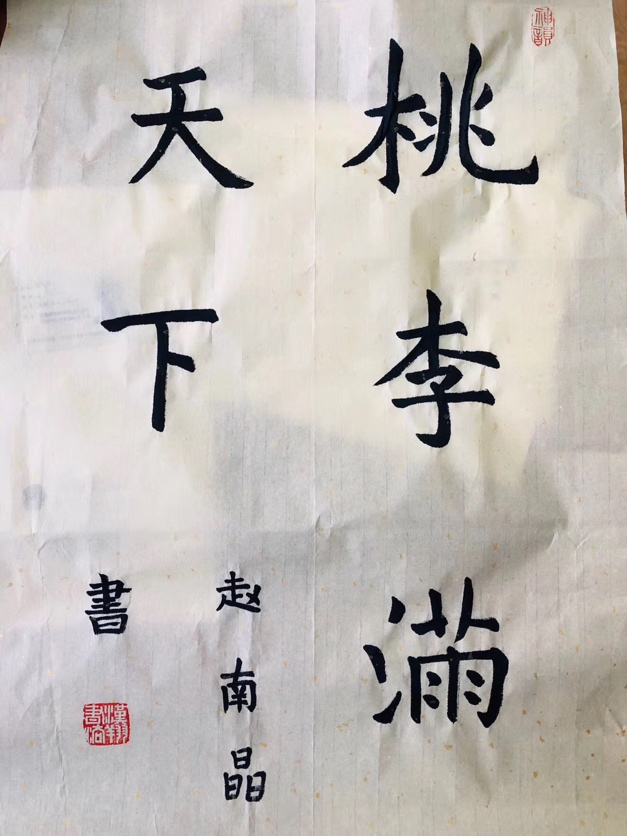 桃李满
天下
赵南晶
書